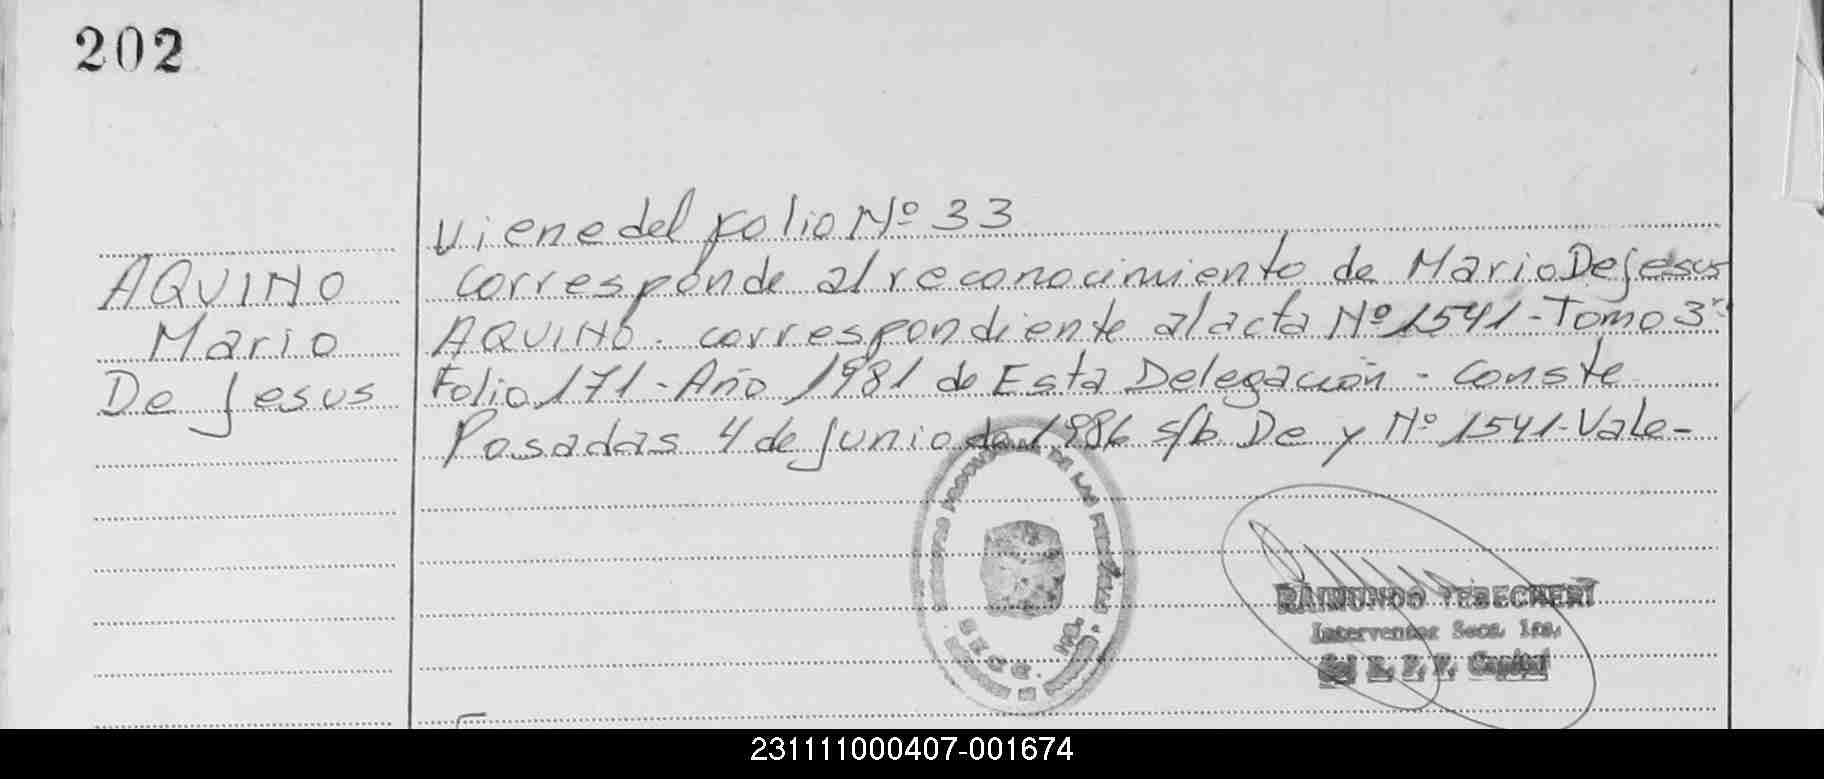 202
AQUINO
Mario
De Jesus
Viene del folio Nº 33
corresponde al reconocimiento de Mario De Jesus
AQUINO. correspondiente al acta Nº 1541-Tomo 3º
Folio 171- Año 1981 de Esta Delegación - conste
Posadas 4 de Junio de 1986 s/b De y Nº 1541-Vale-
DE LAS
SECC.
RAIMUNDO YEBECHERI
Interventor Secc. 1ra.
Capital
231111000407-001674